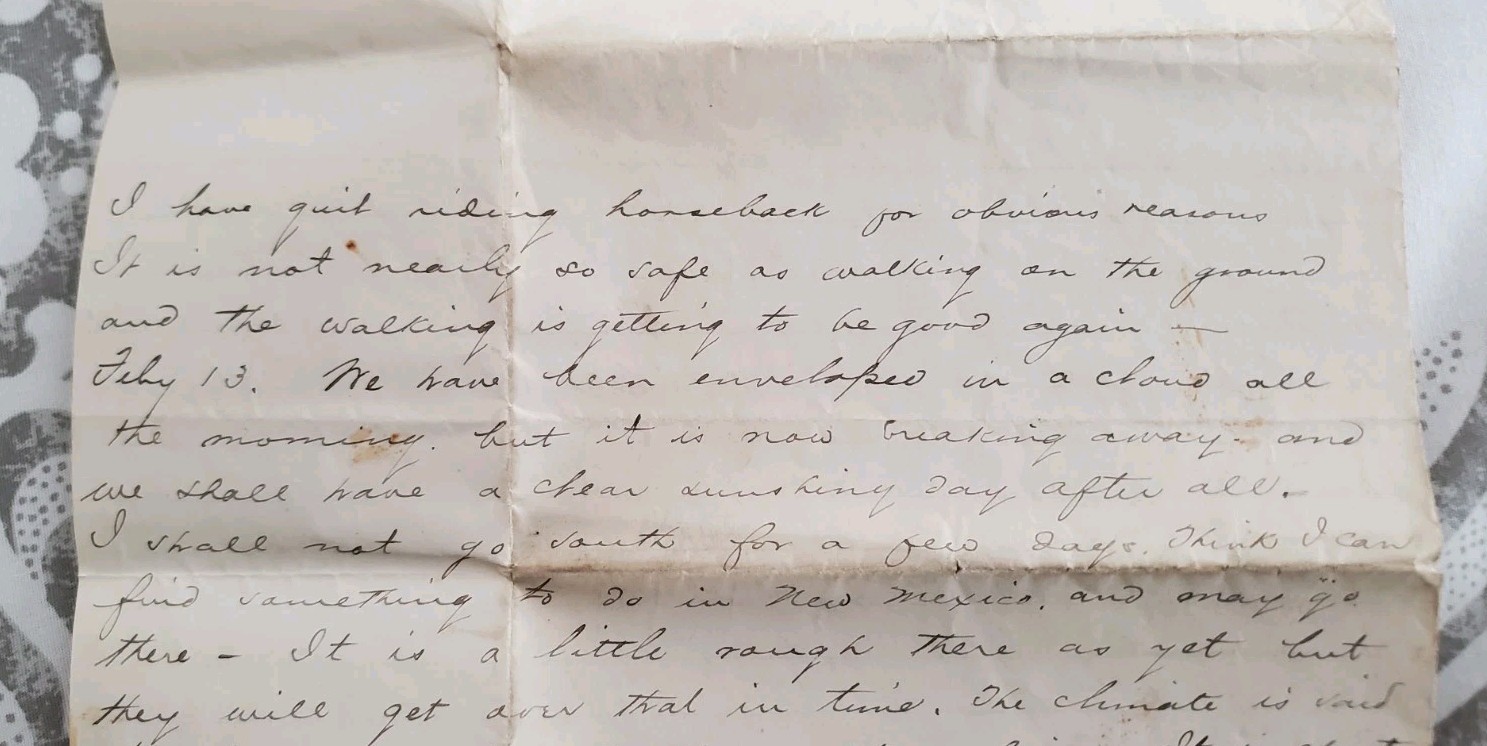 I have quit riding horseback for obvious reasons
It is not nearly so safe as walking on the ground
and the walking is getting to be good again —
Feby 13. We have been enveloped in a cloud all
the morning. but it is now breaking away. and
we shall have a clear sunshiny day after all.
I shall not go south for a few days. Think I can
find something to do in New Mexico. and may go
there - It is a little rough there as yet but
they will get over that in time. The climate is said